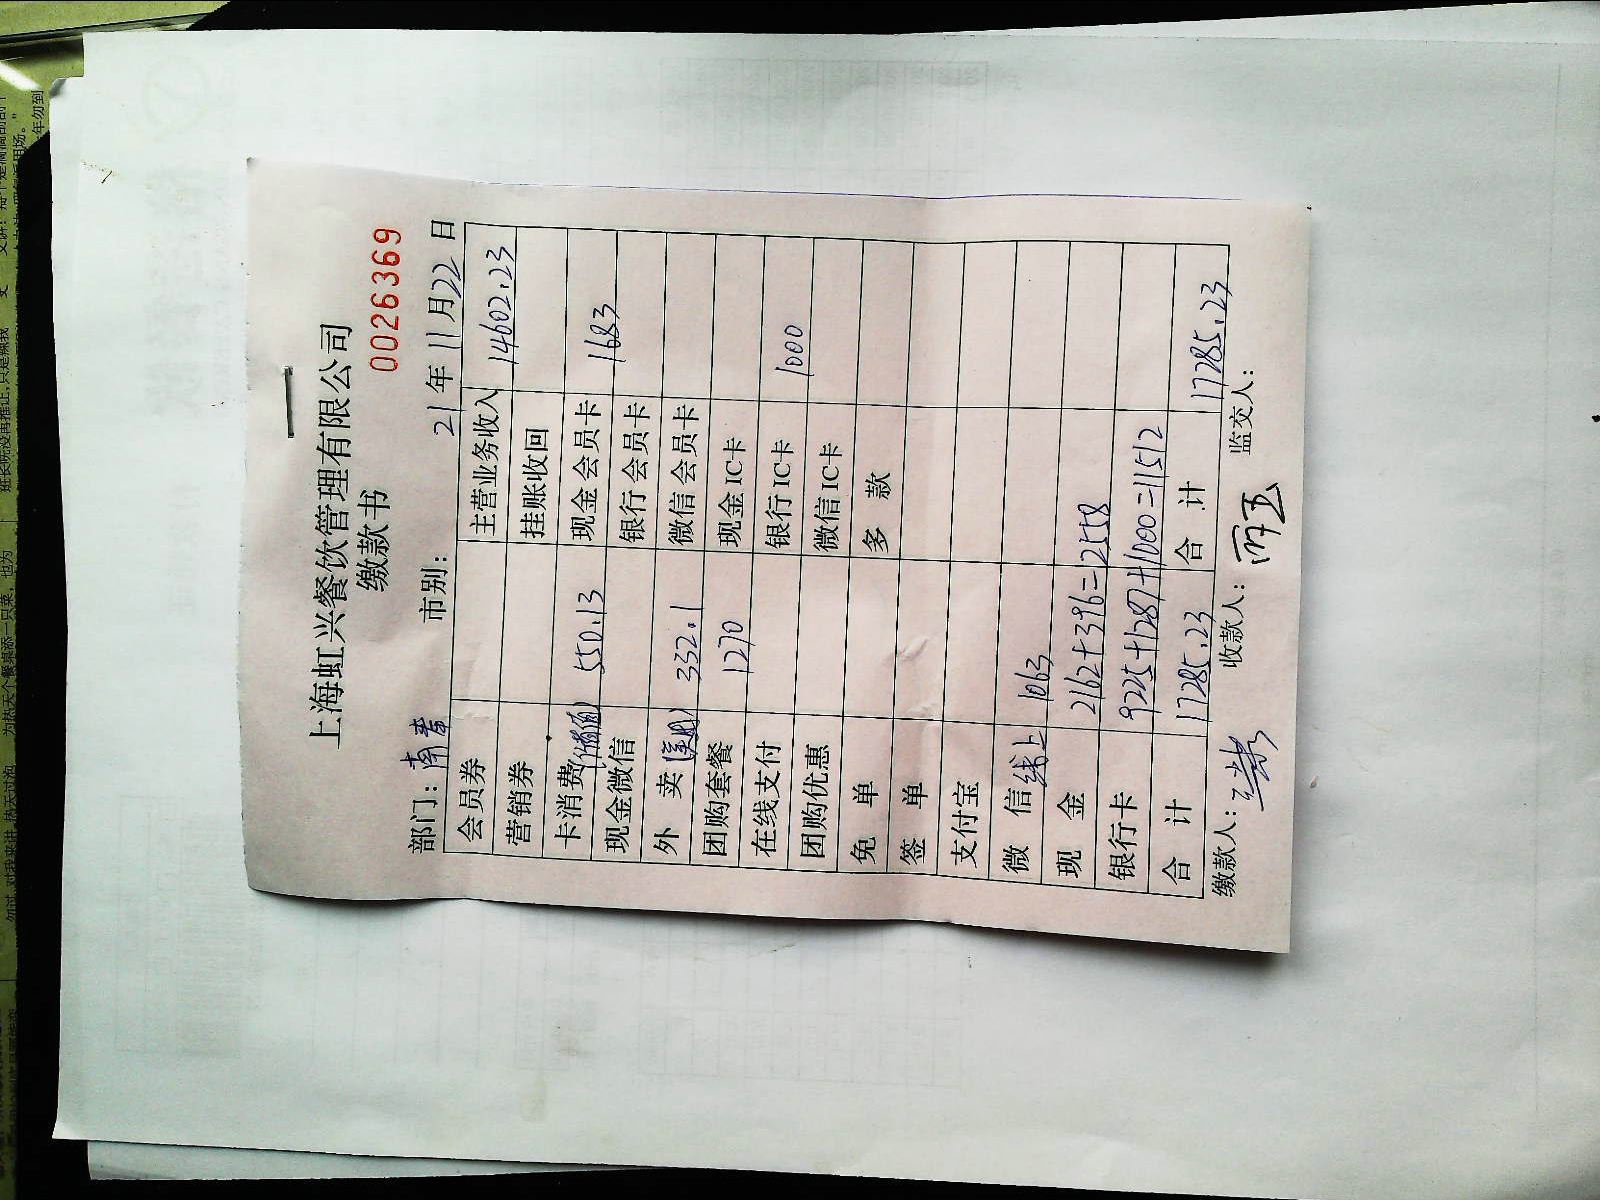 上海虹兴餐饮管理有限公司
缴款书
0026369
部门：南 市别： 21年11月22日
会员券 主营业务收入 14602.23
营销券 挂账收回
卡消费 550.13 现金会员卡 1683
现金微信 银行会员卡
外 卖 332.1 微信会员卡
团购套餐 1270 现金IC卡
在线支付 银行IC卡 1000
团购优惠 微信IC卡
免 单 多 款
签 单
支付宝
微 信线上 1063
现 金 2162+396=2558
银行卡 9225+1287+1000=11512
合 计 17285.23 合 计 17285.23
缴款人： 收款人： 监交人：